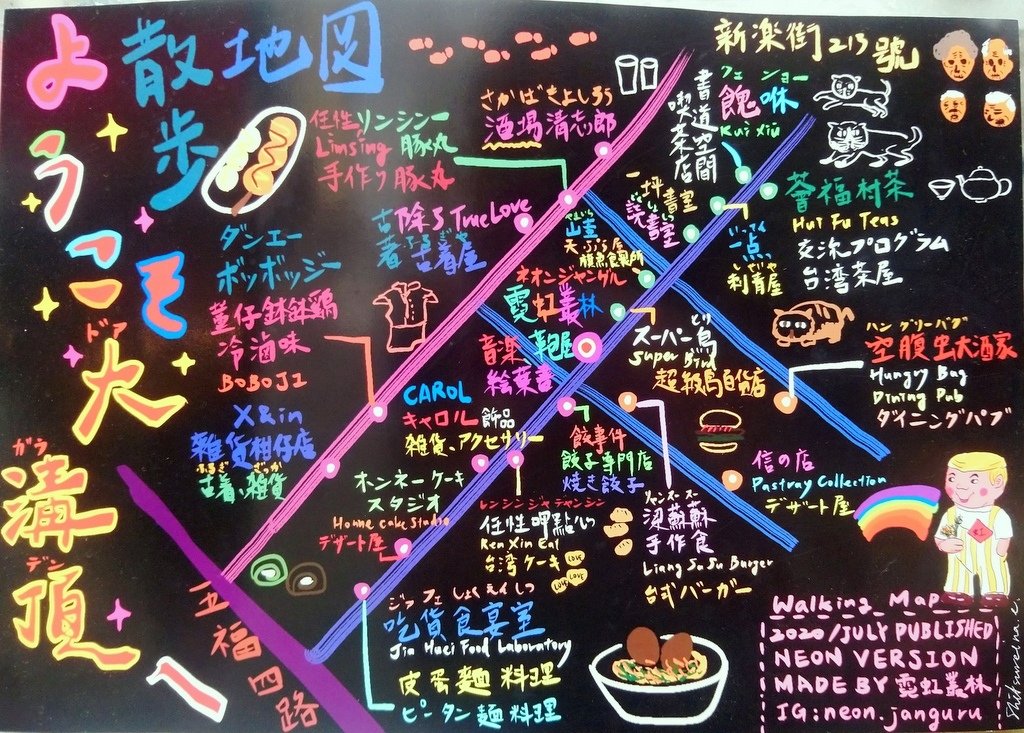 ようこそ大溝頂へ
ドア
ガラ
デン
散歩地図
新楽街213號
さかばきよしろう
酒場清志郎
任性リンシンー
Linsing 豚丸
手作り豚丸
古着
除了TrueLove
ふるぎや
古着屋
ダンエー
ボッボッジー
蛋仔鉢鉢鶏
冷滷味
BOBOJI
X&in
雑貨柑仔店
ふるぎ ざっか
古着、雑貨
書道空間
喫茶店
フェ シュー
餽咻
Kui Xiu
薈福村茶
Hui Fu Teas
交流プログラム
台湾茶屋
一坪書室
読書室
山壹
天ぷら屋
旗魚食製所
一点
刺青屋
ネオンジャングル
霓虹叢林
音楽
絵葉書
スーパー鳥
とり
Super Bird
超級鳥百貨店
ハングリーバグ
空腹虫大酒家
Hungry Bug
Dining Pub
ダイニングパブ
CAROL
キャロル 飾品
雑貨、アクセサリー
餃事件
餃子専門店
焼き餃子
信の店
Pastray Collection
デザート屋
ホンネーケーキ
スタジオ
Honne cake Studio
デザート屋
任性呷點心
Ren Xin Eat
台湾ケーキ
LOVE
LOVE
LOVE
梁蘇蘇
手作食
Liang Su Su Burger
台式バーガー
ジン フェ しょくえんしつ
吃貨食宴室
Jin Huei Food Laboratory
皮蛋麺料理
ピータン麺料理
五福四路
Walking Map
2020/JULY PUBLISHED
NEON VERSION
MADE BY 霓虹叢林
IG:neon.janguru